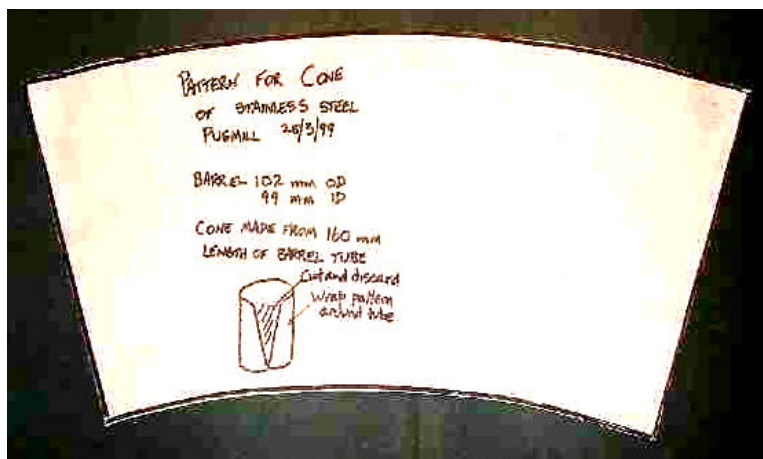 PATTERN FOR CONE
OF STAINLESS STEEL
PUGMILL 25/3/99
BARREL 102 mm OD
99 mm ID
CONE MADE FROM 160 mm
LENGTH OF BARREL TUBE
Cut and discard
Wrap pattern
around tube